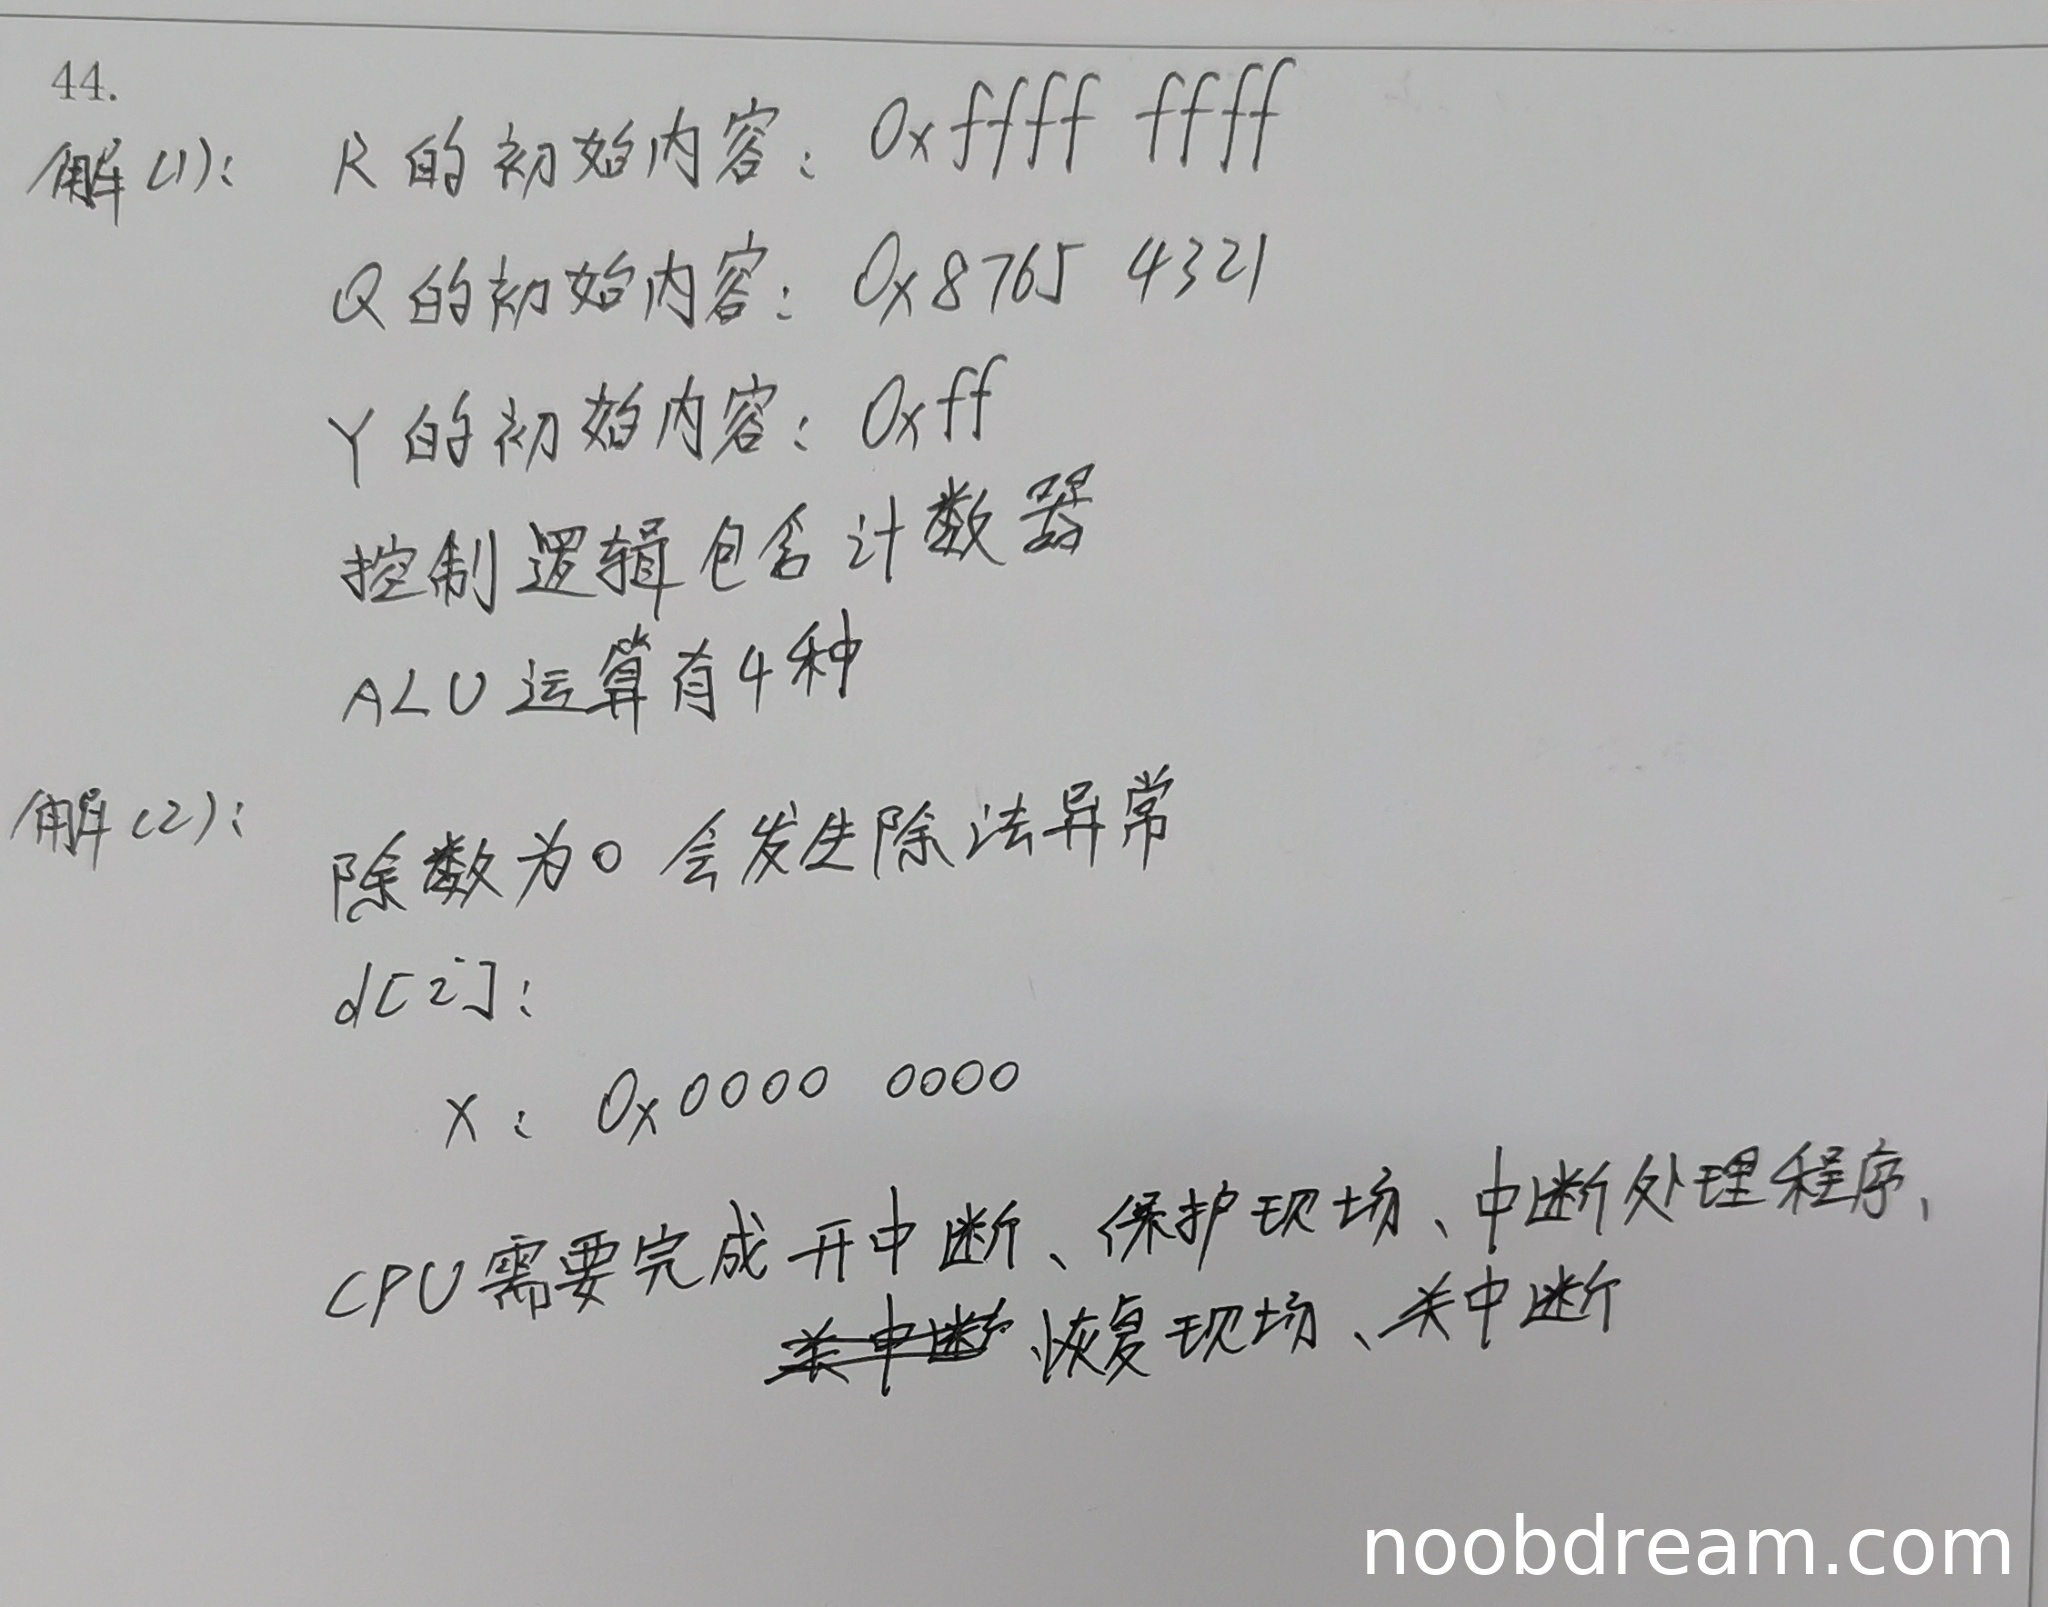 44.
解(1): R的初始内容: 0xffff ffff
Q的初始内容: 0x8765 4321
Y的初始内容: 0xff
控制逻辑包含计数器
ALU运算有4种
解(2): 除数为0会发生除法异常
d[2]:
X: 0x0000 0000
CPU需要完成开中断、保护现场、中断处理程序、
关中断、恢复现场、关中断
noobdream.com